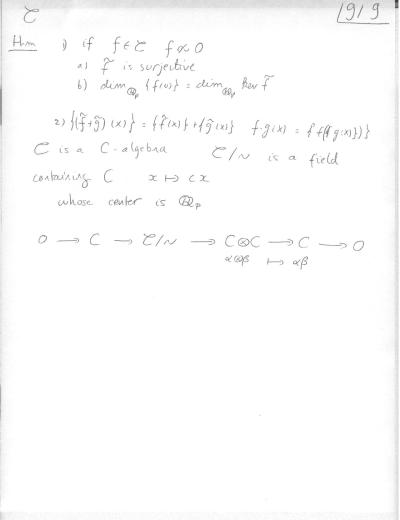 𝒞 19/9
Thm 1) if f ∈ 𝒞 f ≁ 0
a) f̃ is surjective
b) dim_{ℚ_p} {f(0)} = dim_{ℚ_p} Ker f̃
2) {(f̃+g̃)(x)} = {f̃(x)} + {g̃(x)} f·g(x) = {f({g(x)})}
𝒞 is a C-algebra 𝒞/~ is a field
containing C x ↦ cx
whose center is ℚ_p
0 → C → 𝒞/~ → C⊗C → C → 0
α⊗β ↦ αβ